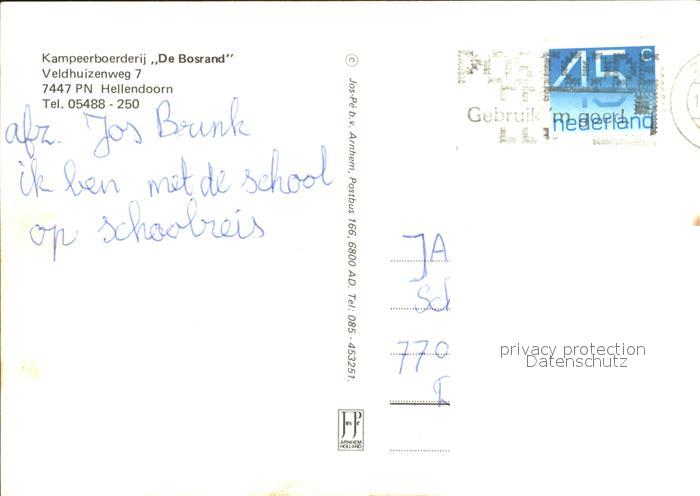 Kampeerboerderij „De Bosrand"
Veldhuizenweg 7
7447 PN Hellendoorn
Tel. 05488 - 250
afz. Jos Brink
ik ben met de school
op schoolreis
© Jos-Pé b.v. Arnhem, Postbus 166, 6800 AD. Tel: 085 - 453251.
Jos Pé
ARNHEM
HOLLAND
45 c
nederland
Gebruik 'm goed
JA
Sch
770
privacy protection
Datenschutz